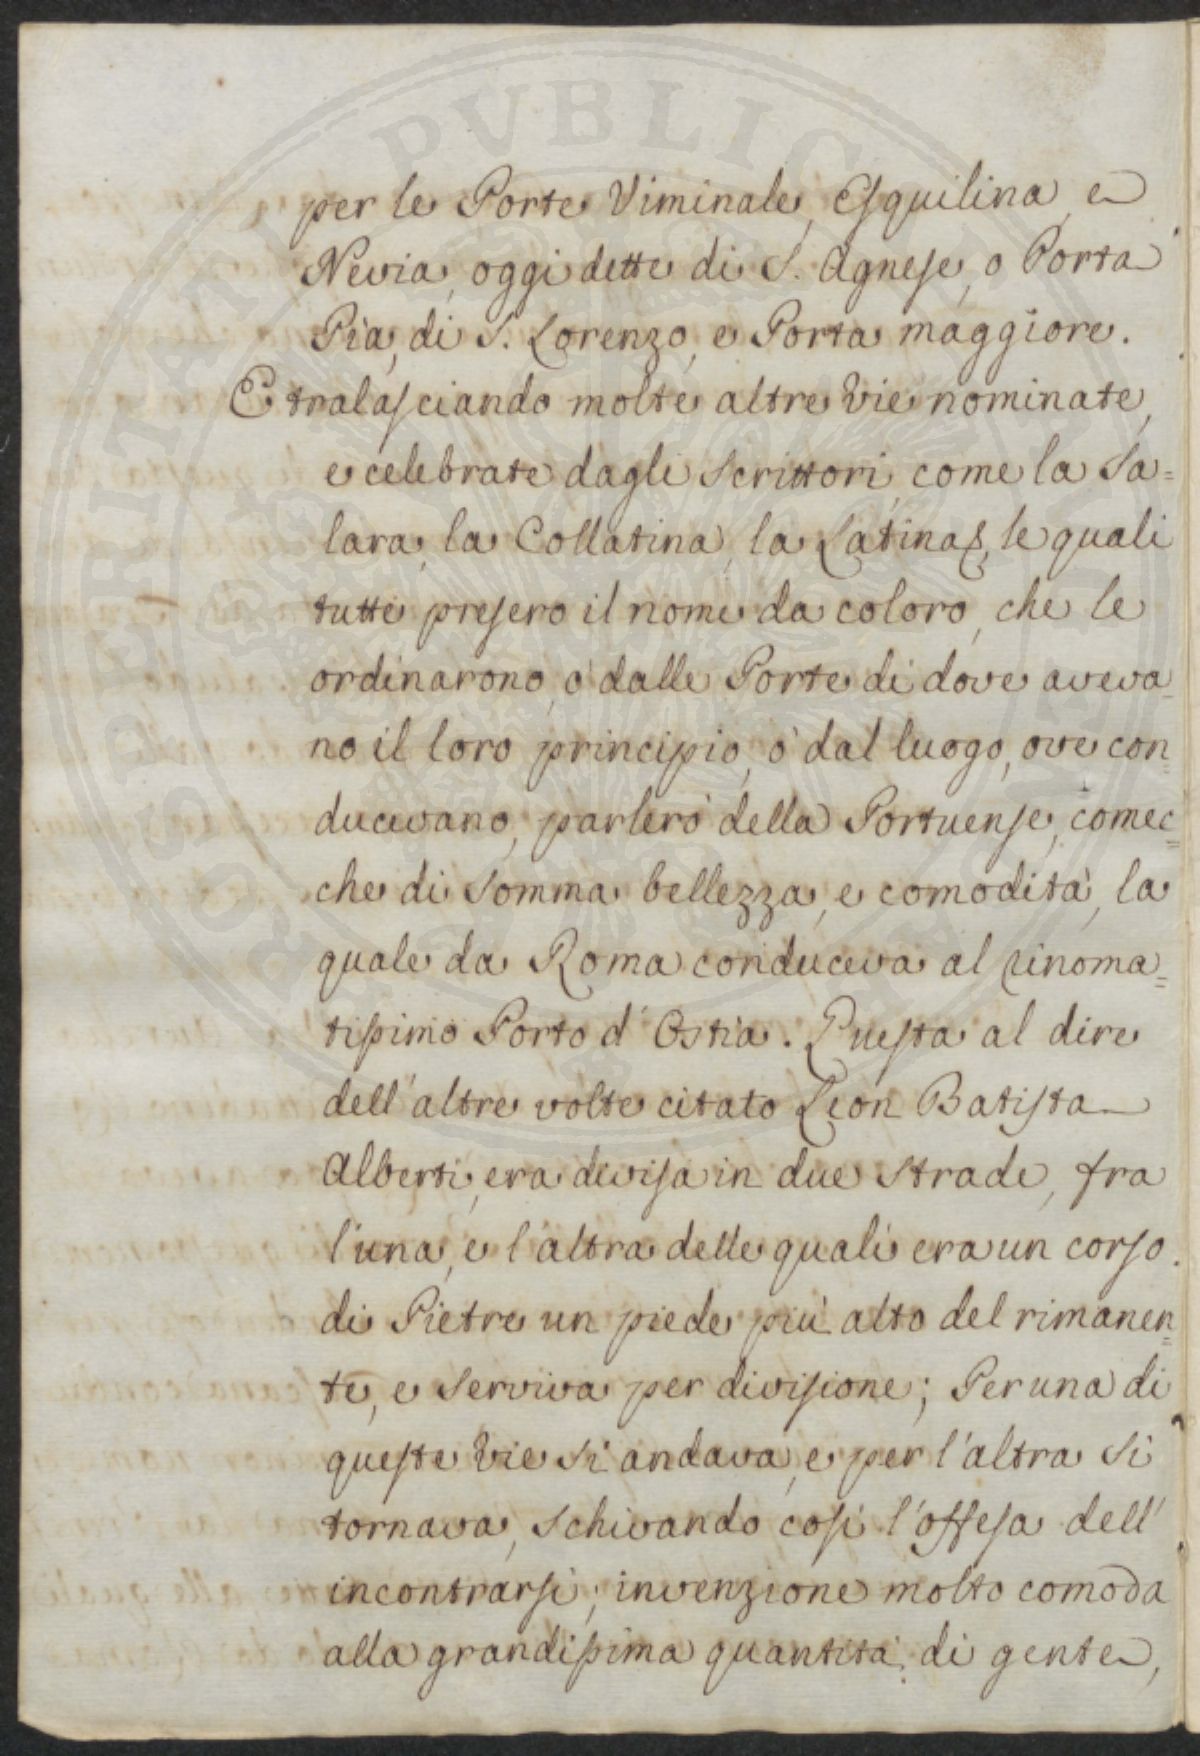 per le Porte Viminale, Esquilina, e
Nevia, oggi dette di S. Agnese, o Porta
Pia, di S. Lorenzo, e Porta maggiore.
E tralasciando molte altre Vie nominate,
e celebrate dagli Scrittori, come la Sa=
lara, la Collatina, la Latina &, le quali
tutte presero il nome da coloro, che le
ordinarono, ò dalle Porte di dove aveva
no il loro principio, ò dal luogo, ove con=
ducevano, parlerò della Portuense, comec=
che di Somma bellezza, e comodità, la
quale da Roma conduceva al rinoma=
tissimo Porto d'Ostia. Questa al dire
dell'altre volte citato Leon Batista
Alberti, era divisa in due Strade, fra
l'una, e l'altra delle quali era un corso
di Pietre un piede più alto del rimanen=
te, e Serviva per divisione; Per una di
queste Vie Si andava, e per l'altra Si
tornava, Schivando così l'offesa dell'
incontrarsi; invenzione molto comoda
alla grandissima quantità di gente,